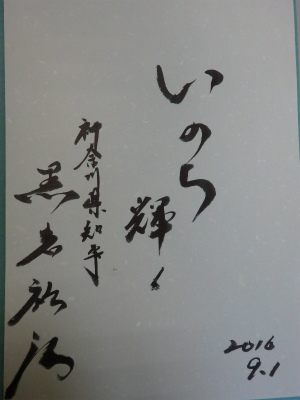 いのち
輝く
神奈川県知事
黒岩祐治
2016
9.1